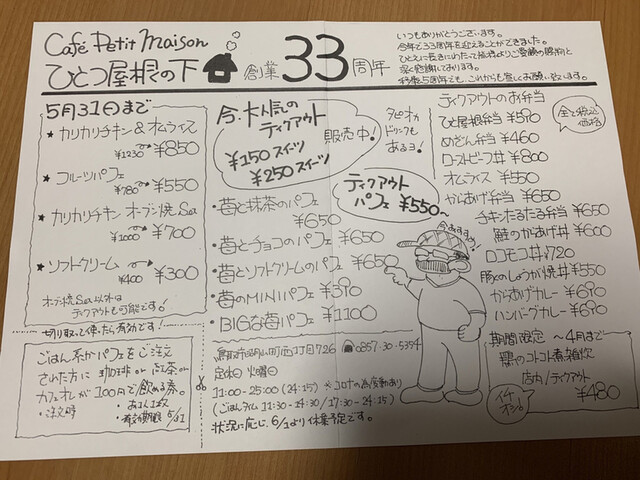 Café Petit Maison
ひとつ屋根の下
創業33周年
いつもありがとうございます。
今年で33周年を迎えることができました。
5月31(日)まで
★ カリカリチキン&オムライス
¥1230 ¥850
★ フルーツパフェ
¥780 ¥550
★ カリカリチキン オーブン焼Set
¥1000 ¥700
★ ソフトクリーム
¥400 ¥300
オーブン焼Set以外は
テイクアウトも可能です!
切り取って使ったら有効です!
ごはん系かパフェをご注文
された方に 珈琲or紅茶or
カフェオレが100円で飲める券。
・注文時
・お1人1枚
・有効期限 5/31
今、大人気の
テイクアウト
¥150 スイーツ
¥250 スイーツ
販売中!
タピオカ
ドリンクも
あるヨ!
テイクアウト
パフェ ¥550~
・苺と抹茶のパフェ
¥650
・苺とチョコのパフェ ¥650
・苺とソフトクリームのパフェ ¥650
・苺のMINIパフェ ¥390
・BIGな苺パフェ ¥1100
今おすすめ!
726 0857-30-5354
定休日 火曜日
11:00-25:00 (24:15) ※コロナの為変動あり
(ごはんタイム 11:30-14:30/17:30-24:15)
状況に応じ、6/1より休業予定です。
テイクアウトのお弁当
全て税込
価格
ひと屋根弁当 ¥590
めざん弁当 ¥460
ローストビーフ丼 ¥800
オムライス ¥550
からあげ弁当 ¥650
チキンたるたる弁当 ¥650
鮭のかあげ丼 ¥600
ロコモコ丼 ¥720
豚のしょうが焼丼 ¥550
からあげカレー ¥690
ハンバーグカレー ¥690
期間限定 ~4月まで
鶏のコトコト煮雑炊
店内/テイクアウト
イチオシ! ¥480